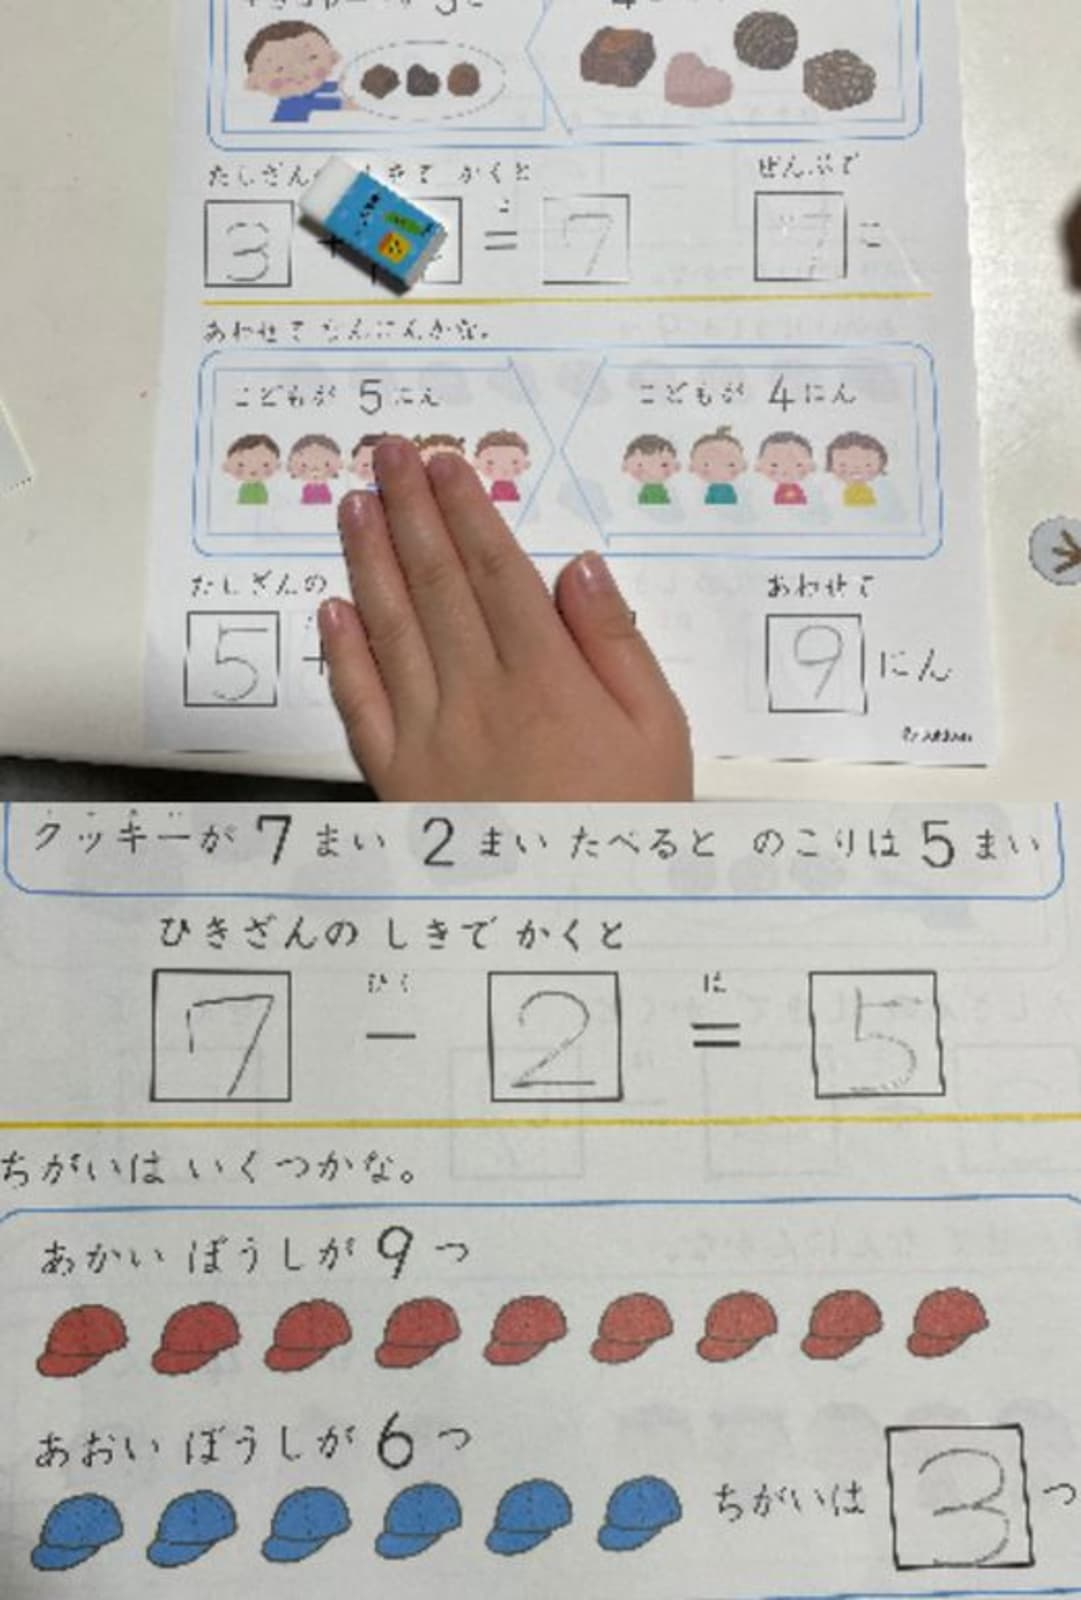 たしざん きで かくと ぜんぶで
3 + = 7 7 こ
あわせて なんにんかな。
こどもが 5 にん こどもが 4 にん
たしざんの あわせて
5 + 9 にん
クッキーが 7 まい 2 まい たべると のこりは 5 まい
ひきざんの しきで かくと
ひく は
7 − 2 = 5
ちがいは いくつかな。
あかい ぼうしが 9 つ
あおい ぼうしが 6 つ
ちがいは 3 つ